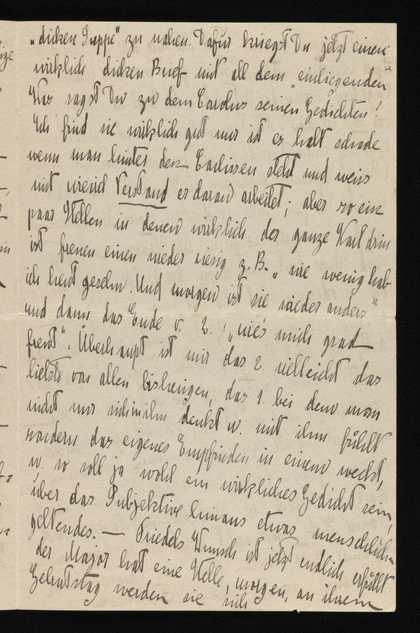 „dicken Suppe" zu nahen. Dafür kriegst Du jetzt einen
wirklich dicken Brief mit all dem einliegenden
Was sagst Du zu dem Carolus seinen Gedichten!
Ich find sie wirklich gut nur ist es halt schade
wenn man hinter den Coulissen steht und weiss
mit wieviel Verstand er daran arbeitet; aber so ein
paar Stellen in denen wirklich der ganze Karl drin
ist freuen einen wieder riesig z. B. „wie wenig hab
ich heut gesehn. Und morgen ist sie wieder anders"
und dann das Ende v. 2. „wie's mich grad
freut". Überhaupt ist mir das 2. vielleicht das
liebste von allen bisherigen, das 1. bei dem man
nicht nur sich in ihn denkt u. mit ihm fühlt
sondern das eigenes Empfinden in einem weckt,
u. so soll ja wohl ein wirkliches Gedicht sein
über das Subjektive hinaus etwas menschlich
geltendes. — Friedels Wunsch ist jetzt endlich erfüllt
der Major hat eine Stelle, morgen, an ihrem
Geburtstag werden sie sich